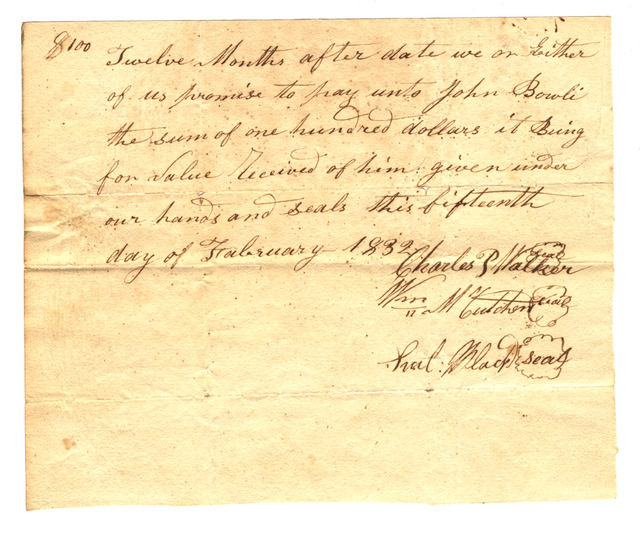 $100 Twelve Months after date we or Either
of us promise to pay unto John Bowli
the sum of one hundred dollars it Being
for value Received of him given under
our hands and seals this fifteenth
day of Fabruary 1832
Charles P Walker seal
Wm McCutchen seal
Black seal